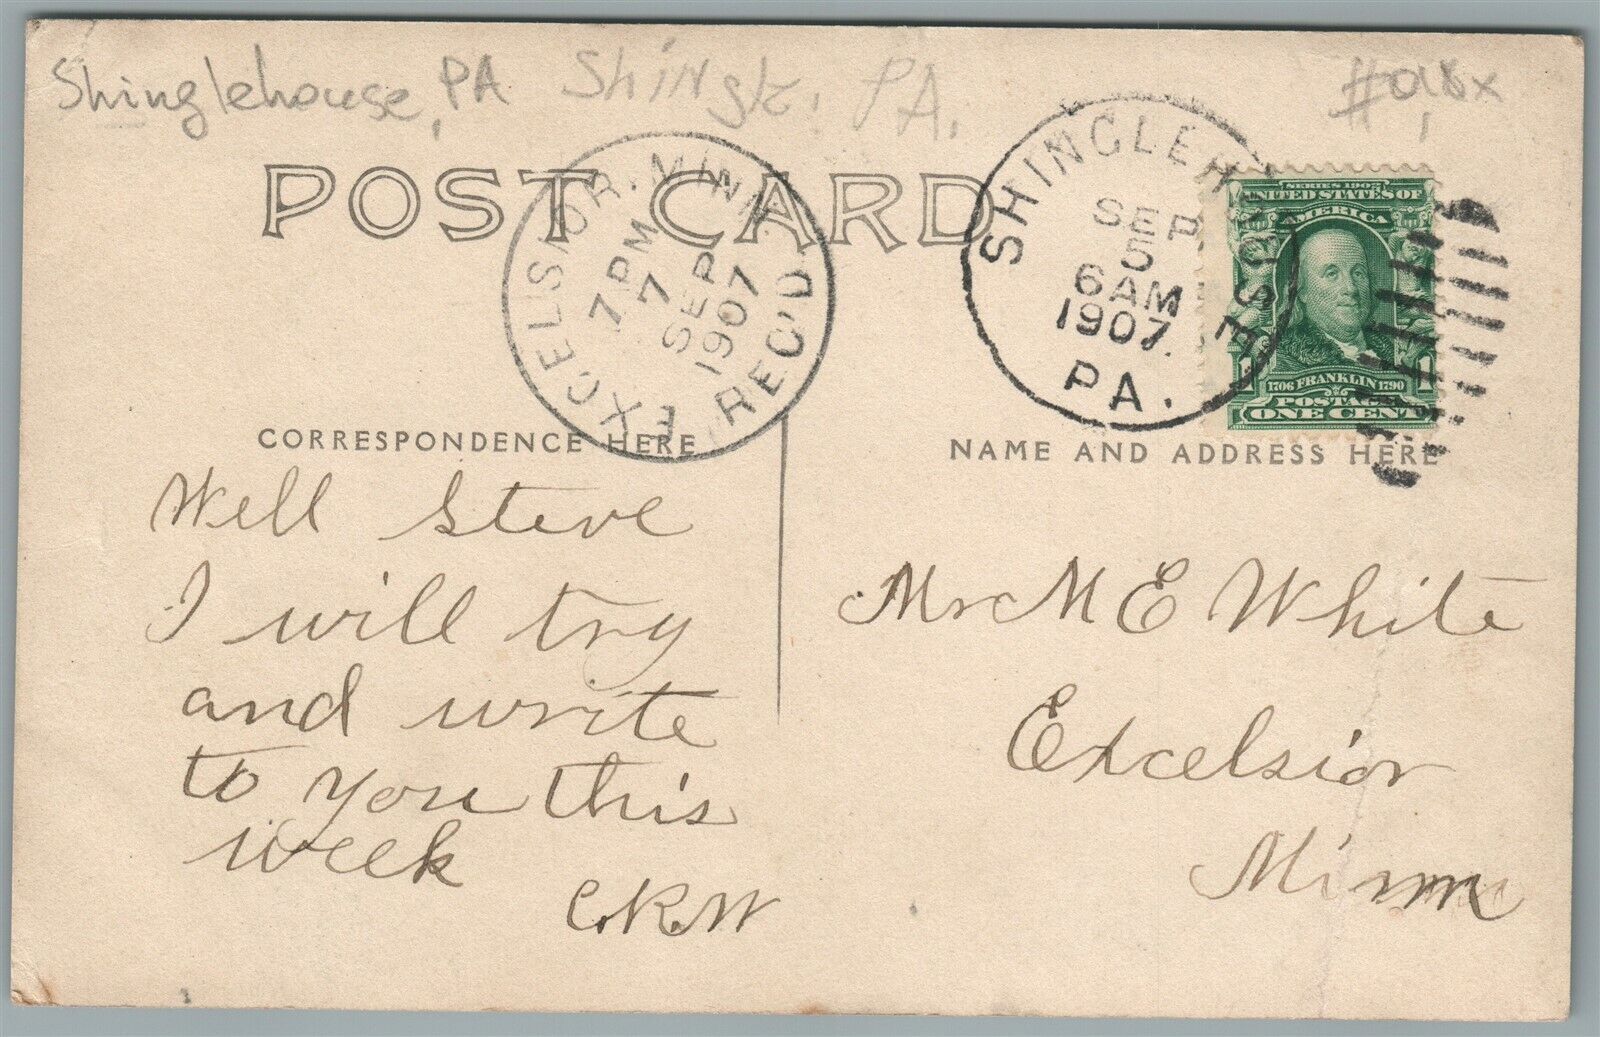 Shinglehouse, PA Shingle. PA.
POST CARD
EXCELSIOR. MINN.
7 PM
7
SEP
1907
REC'D.
SHINGLEHOUSE
SEP
5
6 AM
1907.
PA.
SERIES 1902
UNITED STATES OF
AMERICA
1706 FRANKLIN 1790
1 1
POSTAGE
ONE CENT
CORRESPONDENCE HERE
NAME AND ADDRESS HERE
Well Steve
I will try
and write
to you this
week
C.R.W
Mr M E White
Excelsior
Minn